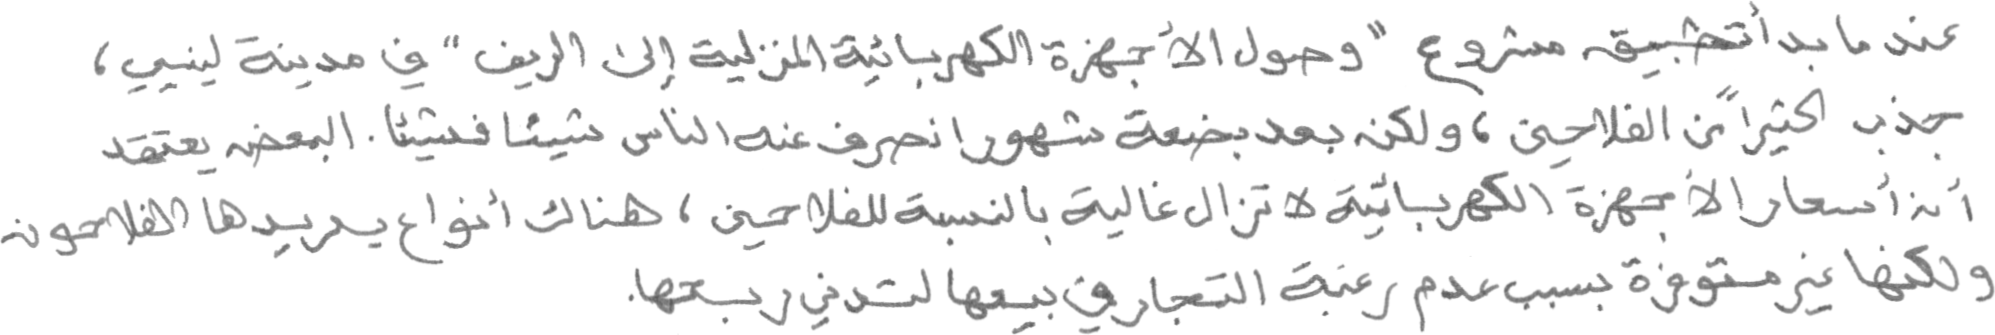 عندما بدأ تطبيق مشروع "وصول الأجهزة الكهربائية المنزلية إلى الريف" في مدينة لينيي،
جذب كثيراً من الفلاحين، ولكن بعد بضعة شهور انصرف عنه الناس شيئا فشيئا. البعض يعتقد
أن أسعار الأجهزة الكهربائية لا تزال غالية بالنسبة للفلاحين، هناك أنواع يريدها الفلاحون
ولكنها غير متوفرة بسبب عدم رغبة التجار في بيعها لتدني ربحها.